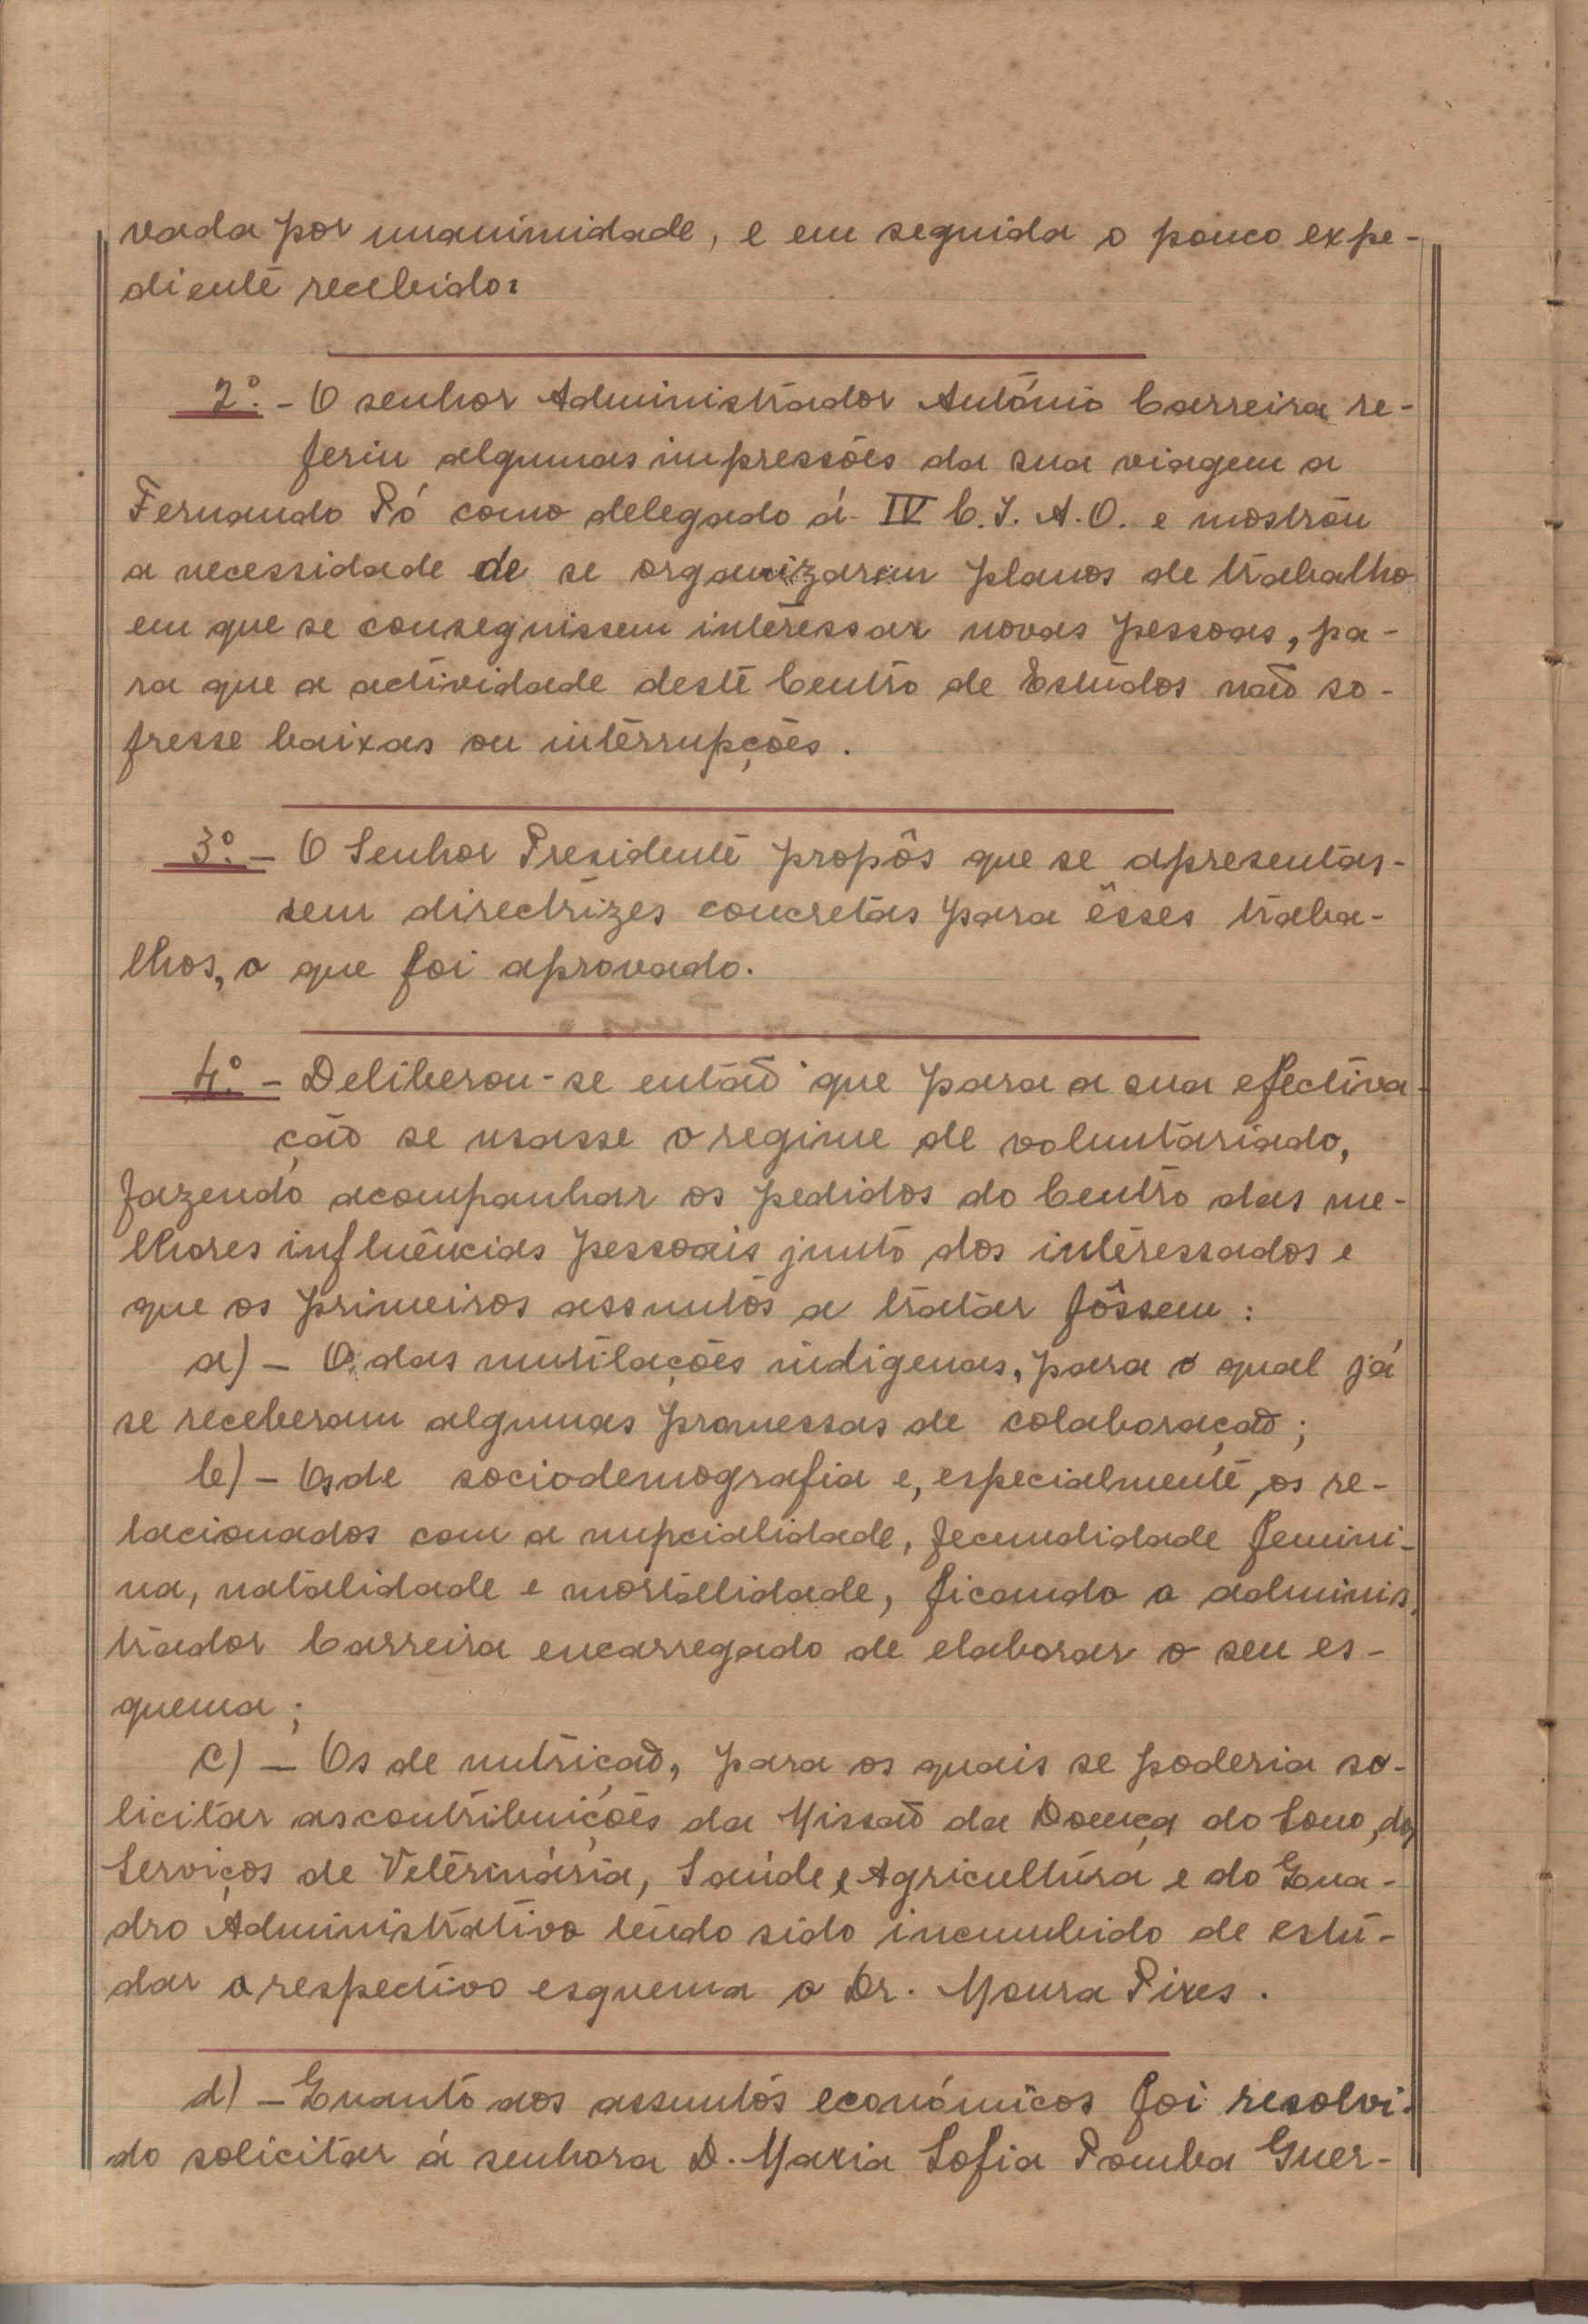 vada por unanimidade, e em seguida o pouco expe-
diente recebido.
2º. - O senhor Administrador António Carreira re-
feriu algumas impressões da sua viagem a
Fernando Pó como delegado á IV C.I.A.O. e mostrou
a necessidade de se organizarem planos de trabalho
em que se conseguissem interessar novas pessoas, pa-
ra que a actividade deste Centro de Estudos não so-
fresse baixas ou interrupções.
3º. - O Senhor Presidente propôs que se apresentas-
sem directrizes concretas para êsses traba-
lhos, o que foi aprovado.
4º. - Deliberou-se então que para a sua efectiva-
ção se usasse o regime de voluntariado,
fazendo acompanhar os pedidos do Centro das me-
lhores influências pessoais junto dos interessados e
que os primeiros assuntos a tratar fôssem:
a) - O das mutilações indigenas, para o qual já
se receberam algumas promessas de colaboração;
b) - Os de sociodemografia e, especialmente, os re-
lacionados com a nupcialidade, fecundidade femini-
na, natalidade e mortalidade, ficando o adminis-
trador Carreira encarregado de elaborar o seu es-
quema;
c) - Os de nutrição, para os quais se poderia so-
licitar as contribuições da Missão da Doença do Sono, dos
Serviços de Veterinária, Saúde e Agricultura e do Qua-
dro Administrativo tendo sido incumbido de estu-
dar o respectivo esquema o Dr. Moura Pires.
d) - Quanto aos assuntos económicos foi resolvi-
do solicitar á senhora D. Maria Sofia Pomba Guer-